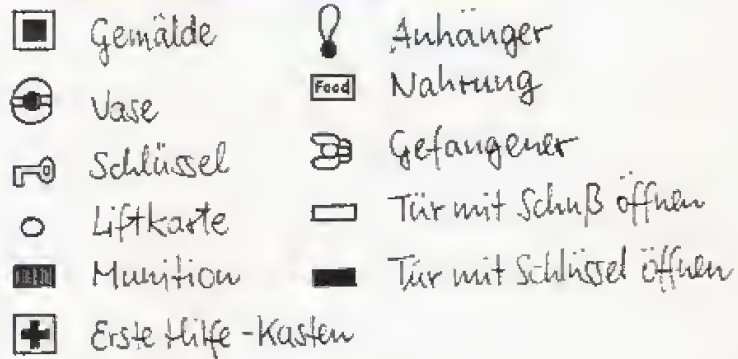 Gemälde
Vase
Schlüssel
Liftkarte
Munition
Erste Hilfe-Kasten
Anhänger
Food Nahrung
Gefangener
Tür mit Schuß öffnen
Tür mit Schlüssel öffnen